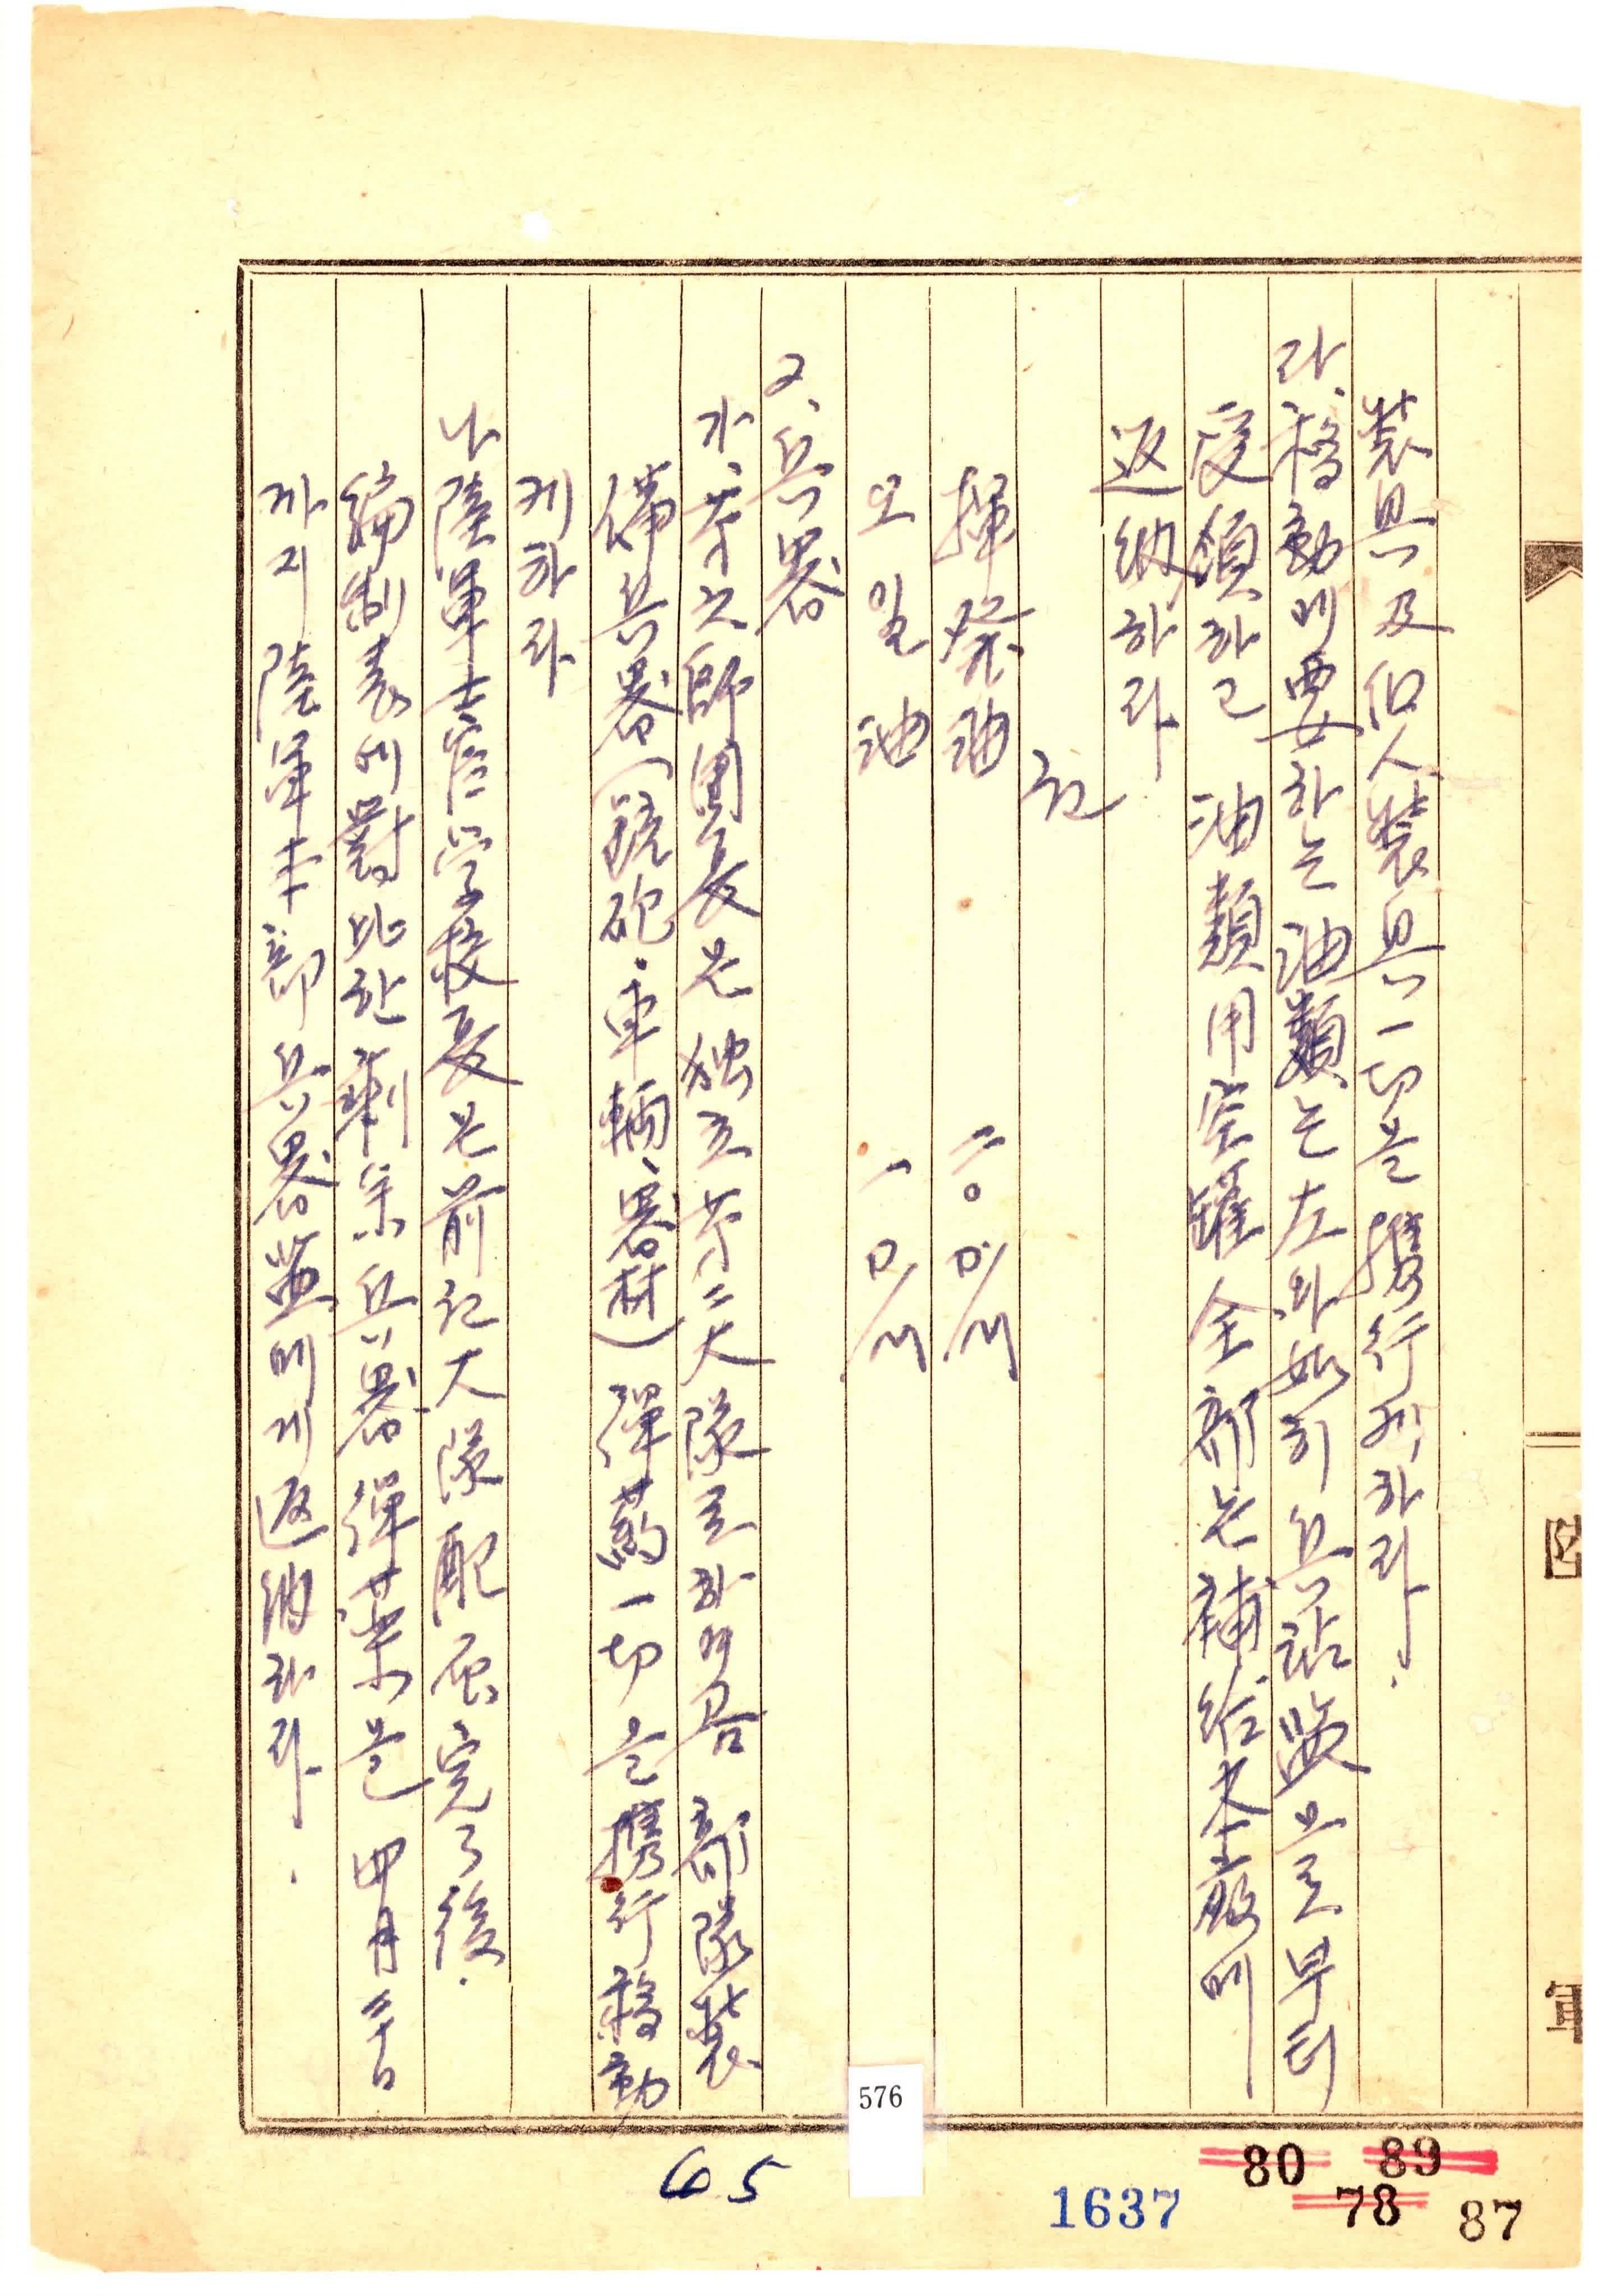 裝具及個人裝具一切은携行케하라.
라、移動에要하는油類는左와如히兵站監으로부터
受領하고 油類用空罐全部는補給本廠에
返納하라
記
揮発油 二〇D/M
오일油 一D/M
2、兵器
가、第六師團長은独立第二大隊로하여금 部隊裝
備兵器(銃砲・車輛、器材) 彈薬一切를携行移動
케하라
나 陸軍士官学校長은前記大隊配属完了後.
編制表에對比한剰余兵器彈薬은 四月三十日
까지陸軍本部兵器監에게返納하라.
陸
軍
576
65
1637
80
89
78
87